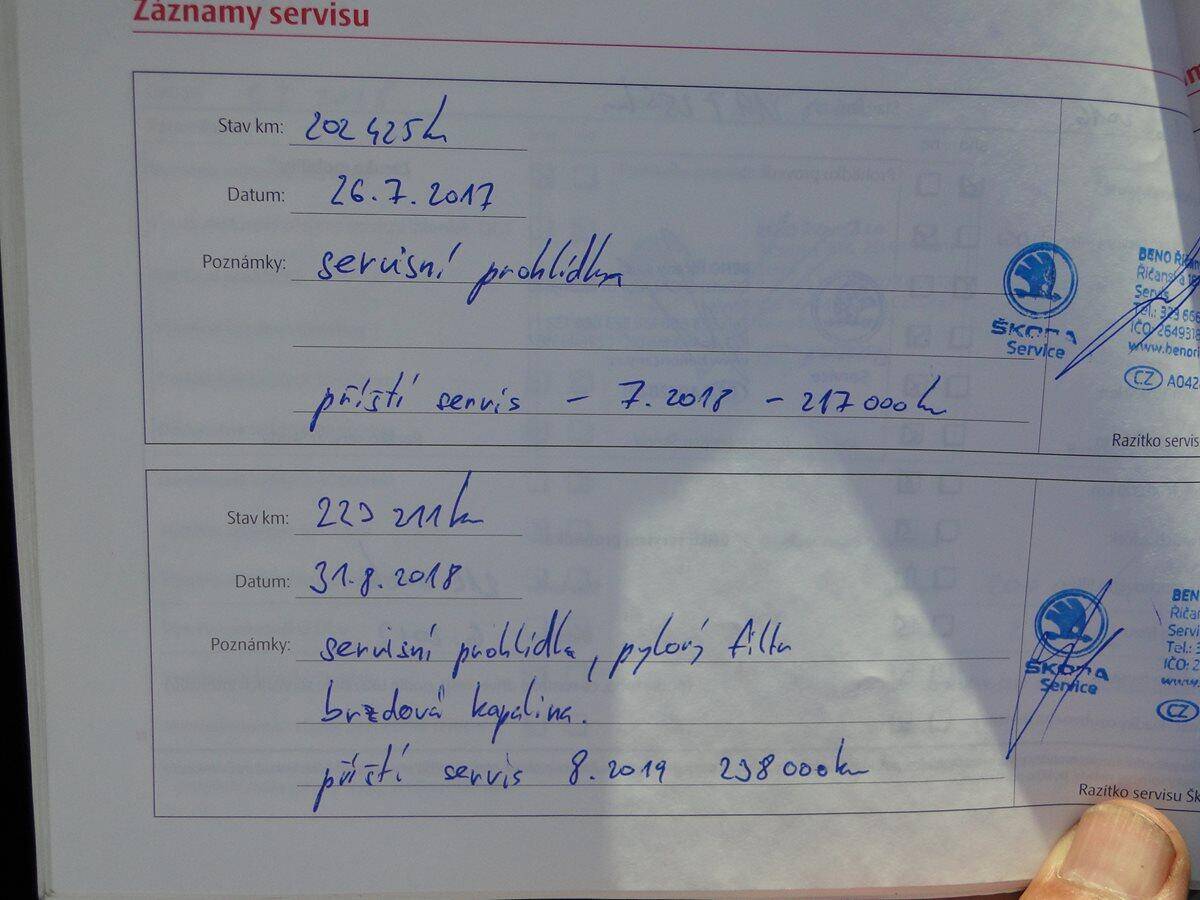 Záznamy servisu
Stav km: 202 425km
Datum: 26.7.2017
Poznámky: servisní prohlídka
příští servis – 7.2018 – 217 000km
ŠKODA
Service
BENO Říčan
Říčanská
Servis
Tel.: 323 666
IČO: 2649318
www.benori
CZ A042
Razítko servis
Stav km: 223 211km
Datum: 31.8.2018
Poznámky: servisní prohlídka, pylový filtr
brzdová kapalina.
příští servis 8.2019 238 000km
ŠKODA
Service
BEN
Říčan
Servi
Tel.: 3
IČO: 2
www.
CZ
Razítko servisu Šk